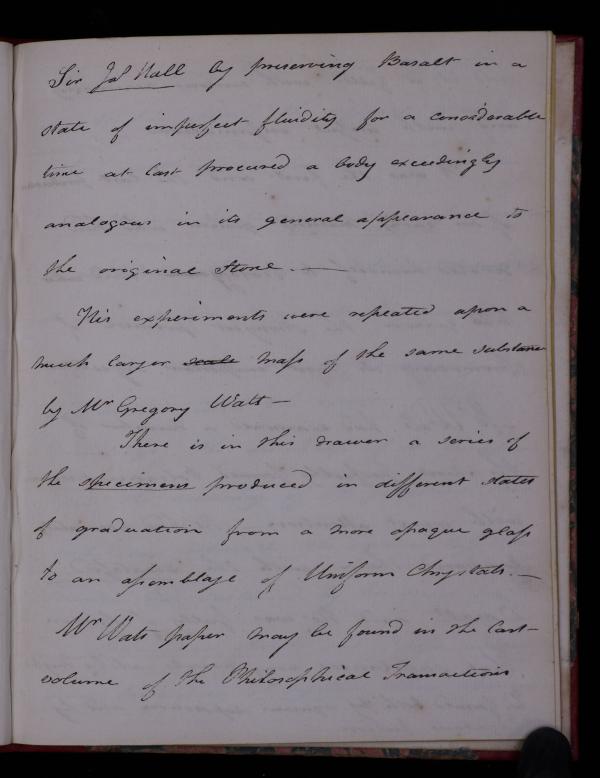 Sir Jas Hall by preserving Basalt in a
state of imperfect fluidity for a considerable
time at last procured a body exceedingly
analogous in its general appearance to
the original stone. —
His experiments were repeated upon a
much larger scale mass of the same substance
by Mr Gregory Watt —
There is in this drawer a series of
the specimens produced in different states
of graduation from a more opaque glass
to an assemblage of Uniform Chrystals. —
Mr Wats paper may be found in the last
volume of the Philosophical Transactions